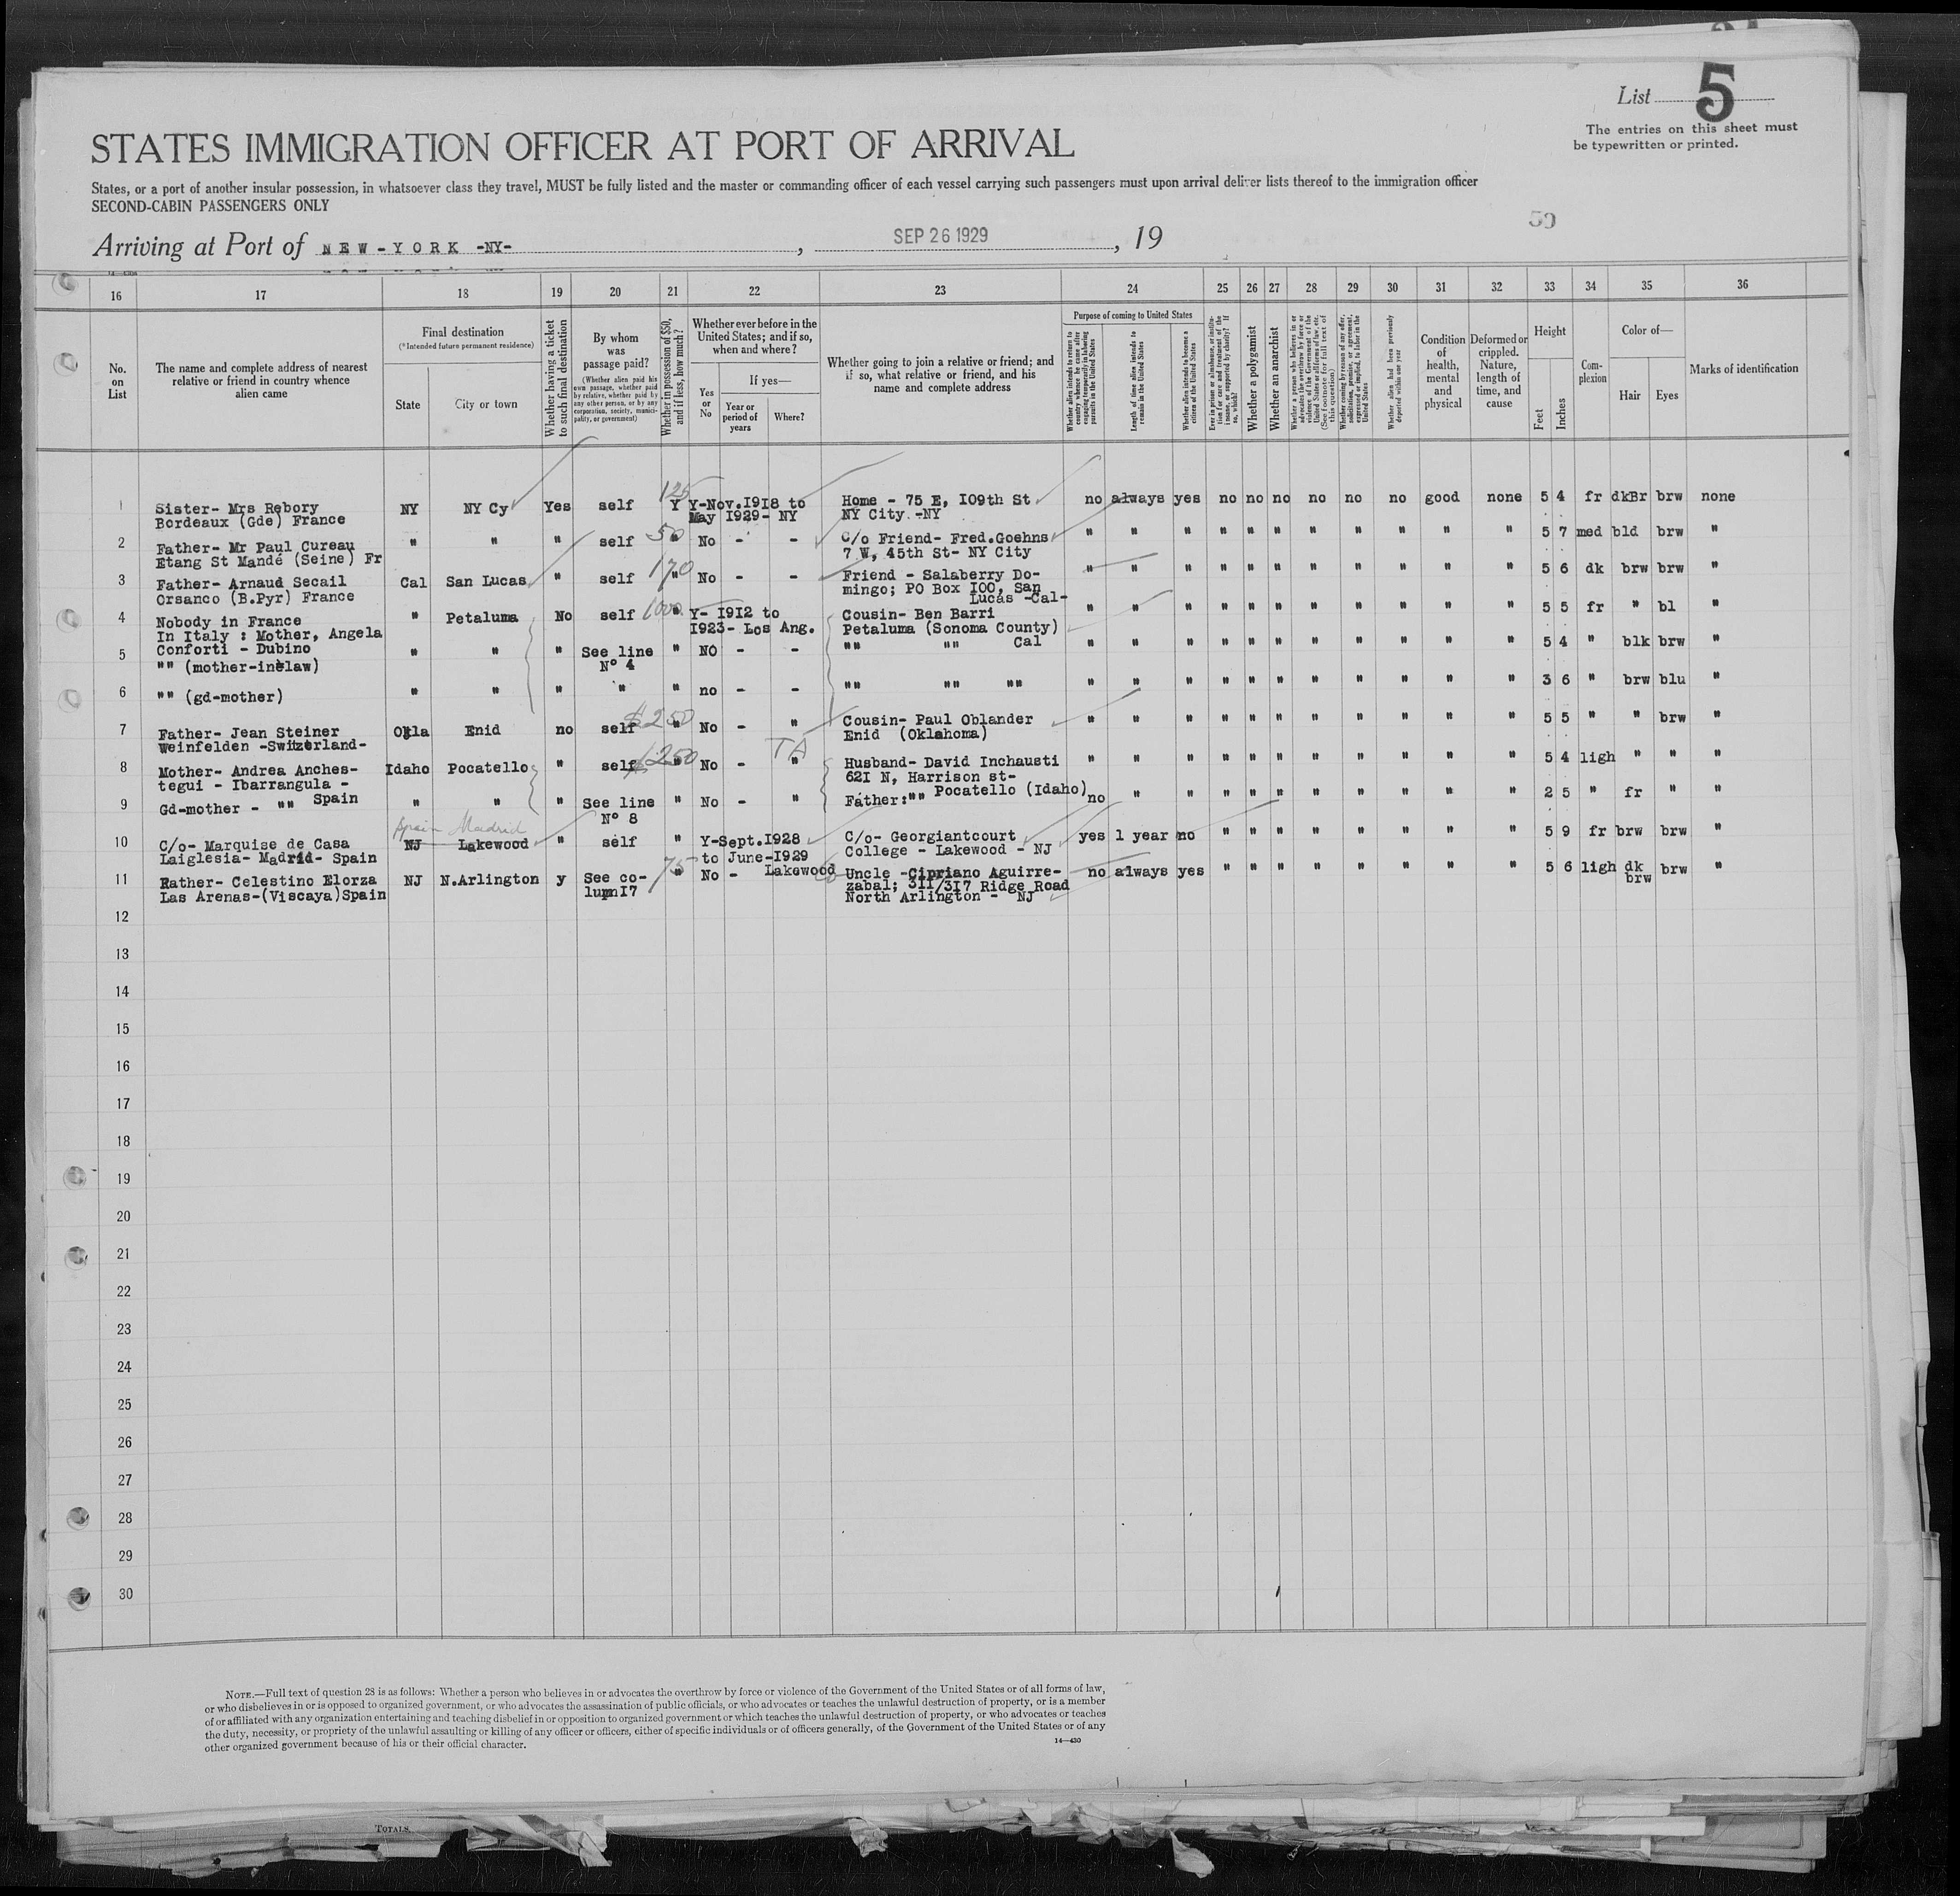 List 5
The entries on this sheet must
be typewritten or printed.
STATES IMMIGRATION OFFICER AT PORT OF ARRIVAL
States, or a port of another insular possession, in whatsoever class they travel, MUST be fully listed and the master or commanding officer of each vessel carrying such passengers must upon arrival deliver lists thereof to the immigration officer
SECOND-CABIN PASSENGERS ONLY
50
Arriving at Port of NEW-YORK -NY- , SEP 26 1929 , 19
16 17 18 19 20 21 22 23 24 25 26 27 28 29 30 31 32 33 34 35 36
No. on List
The name and complete address of nearest
relative or friend in country whence
alien came
Final destination
(*Intended future permanent residence)
State
City or town
Whether having a ticket
to such final destination
By whom
was
passage paid?
(Whether alien paid his
own passage, whether paid
by relative, whether paid by
any other person, or by any
corporation, society, munici-
pality, or government)
Whether in possession of $50,
and if less, how much?
Whether ever before in the
United States; and if so,
when and where?
Yes
or
No
If yes—
Year or
period of
years
Where?
Whether going to join a relative or friend; and
if so, what relative or friend, and his
name and complete address
Purpose of coming to United States
Whether alien intends to return to
country whence he came after
engaging temporarily in laboring
pursuits in the United States
Length of time alien intends to
remain in the United States
Whether alien intends to become a
citizen of the United States
Ever in prison or almshouse, or institu-
tion for care and treatment of the
insane, or supported by charity? If
so, which?
Whether a polygamist
Whether an anarchist
Whether a person who believes in or
advocates the overthrow by force or
violence of the Government of the
United States or all forms of law, etc.
(See footnote for full text of
this question)
Whether coming by reason of any offer,
solicitation, promise, or agreement,
expressed or implied, to labor in the
United States
Whether alien had been previously
deported within one year
Condition
of
health,
mental
and
physical
Deformed or
crippled.
Nature,
length of
time, and
cause
Height
Feet
Inches
Com-
plexion
Color of—
Hair
Eyes
Marks of identification
125
1 Sister- Mrs Rebory NY NY Cy Yes self Y Y-Nov.1918 to Home - 75 E, 109th St no always yes no no no no no no good none 5 4 fr dkBr brw none
Bordeaux (Gde) France May 1929- NY NY City -NY
2 Father- Mr Paul Cureau " " " self 50 " No - - C/o Friend- Fred.Goehns " " " " " " " " " " " 5 7 med bld brw "
Etang St Mandé (Seine) Fr 7 W, 45th St- NY City
3 Father- Arnaud Secail Cal San Lucas " self 170 " No - - Friend - Salaberry Do- " " " " " " " " " " " 5 6 dk brw brw "
Orsanco (B.Pyr) France mingo; PO Box 100, San
Lucas -Cal-
4 Nobody in France " Petaluma No self 1000 " Y- 1912 to Cousin- Ben Barri " " " " " " " " " " " 5 5 fr " bl "
In Italy : Mother, Angela 1923- Los Ang. Petaluma (Sonoma County)
5 Conforti - Dubino " " " See line " NO - - "" "" Cal " " " " " " " " " " " 5 4 " blk brw "
"" (mother-in-law) N° 4
6 "" (gd-mother) " " " " " no - - "" "" "" " " " " " " " " " " " 3 6 " brw blu "
7 Father- Jean Steiner Okla Enid no self $250 " No - " Cousin- Paul Oblander " " " " " " " " " " " 5 5 " " brw "
Weinfelden -Switzerland- Enid (Oklahoma)
TA
8 Mother- Andrea Anches- Idaho Pocatello " self $250 " No - " Husband- David Inchausti " " " " " " " " " " " 5 4 ligh " " "
tegui - Ibarrangula - 621 N, Harrison st-
Spain Pocatello (Idaho)
9 Gd-mother - "" " " " See line " No - " Father:"" no " " " " " " " " " " 2 5 " fr " "
N° 8
Spain Madrid
10 C/o- Marquise de Casa NJ Lakewood " self " Y-Sept.1928 C/o- Georgiantcourt yes 1 year no " " " " " " " " 5 9 fr brw brw "
Laiglesia- Madrid- Spain to June-1929 College - Lakewood - NJ
Lakewood
11 Rather- Celestino Elorza NJ N.Arlington y See co- 75 " No - Uncle -Cipriano Aguirre- no always yes " " " " " " " " 5 6 ligh dk brw brw "
Las Arenas-(Viscaya)Spain lumn17 zabal; 311/317 Ridge Road
North Arlington - NJ
12
13
14
15
16
17
18
19
20
21
22
23
24
25
26
27
28
29
30
NOTE.—Full text of question 28 is as follows: Whether a person who believes in or advocates the overthrow by force or violence of the Government of the United States or of all forms of law,
or who disbelieves in or is opposed to organized government, or who advocates the assassination of public officials, or who advocates or teaches the unlawful destruction of property, or is a member
of or affiliated with any organization entertaining and teaching disbelief in or opposition to organized government or which teaches the unlawful destruction of property, or who advocates or teaches
the duty, necessity, or propriety of the unlawful assaulting or killing of any officer or officers, either of specific individuals or of officers generally, of the Government of the United States or of any
other organized government because of his or their official character.
14—430
TOTALS